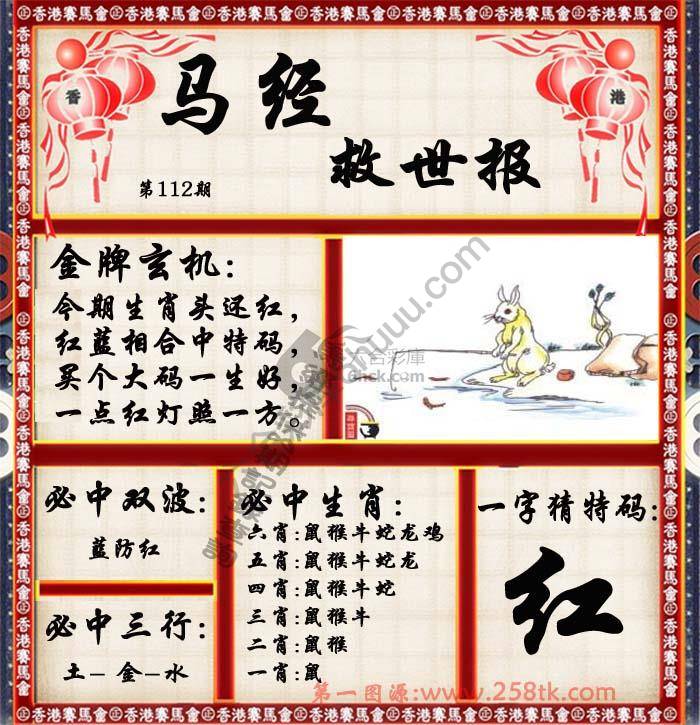 香港賽馬會㊣香港賽馬會㊣香港賽馬會㊣香港賽馬會㊣香港賽馬會㊣香港賽馬會
香
港
马经
救世报
第112期
金牌玄机:
今期生肖头还红,
红蓝相合中特码,
买个大码一生好,
一点红灯照一方。
六合彩庫
必中双波:
蓝防红
必中三行:
土-金-水
必中生肖:
六肖:鼠猴牛蛇龙鸡
五肖:鼠猴牛蛇龙
四肖:鼠猴牛蛇
三肖:鼠猴牛
二肖:鼠猴
一肖:鼠
一字猜特码:
红
第一图源:www.258tk.com